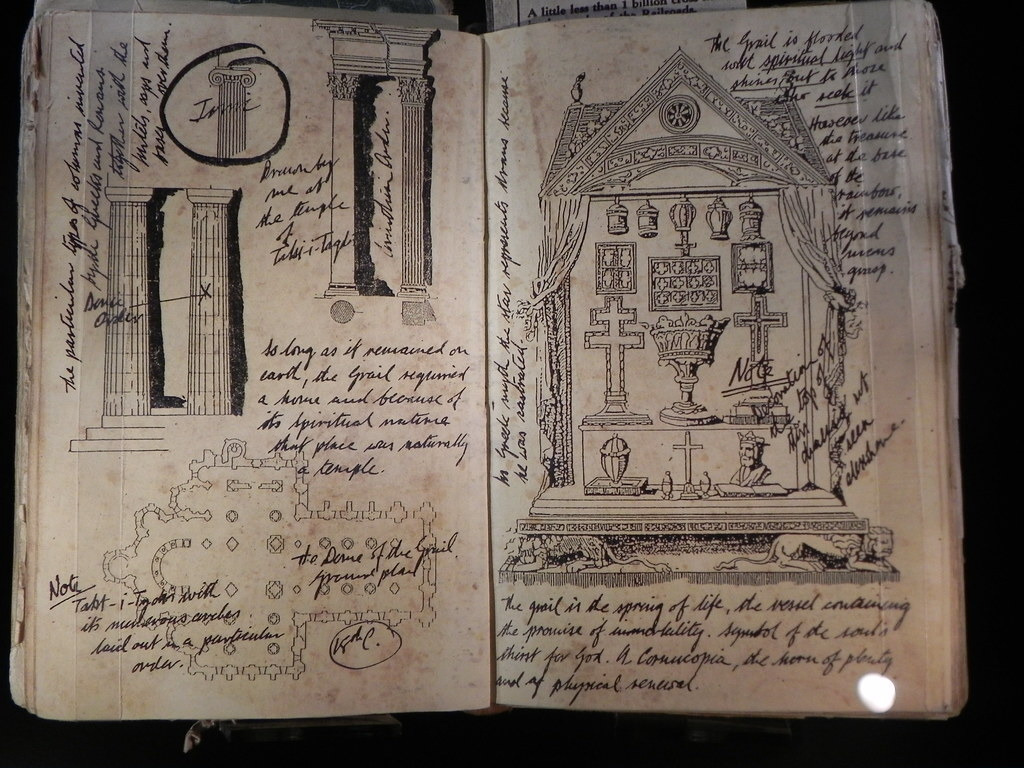 A little less than 1 billion
of the Railroads.
The particular types of columns invented
by the Greeks and Romans
together with the
lintels, ways and
over them.
Ionic
Drawn by
me at
the temple
of
Takt-i-Taqd
Corinthian Order.
Doric
Order
So long as it remained on
earth, the Grail required
a home and because of
its spiritual nature
that place was naturally
a temple.
the Dome of the Grail
ground plan
Note
Takt-i-Taqdis with
its numerous arches
laid out in a particular
order.
The Grail is flooded
with spiritual light and
shines but to those
who seek it
However like
the treasure
at the base
of the
rainbow,
it remains
beyond
humans
grasp.
In Greek myth the star represents Uranus because
he was castrated
Note
Decoration of
the top of
this
drawing not
seen
elsewhere.
The grail is the spring of life, the vessel containing
the promise of immortality. Symbol of the soul's
thirst for God. A Cornucopia, the horn of plenty
and of physical renewal.